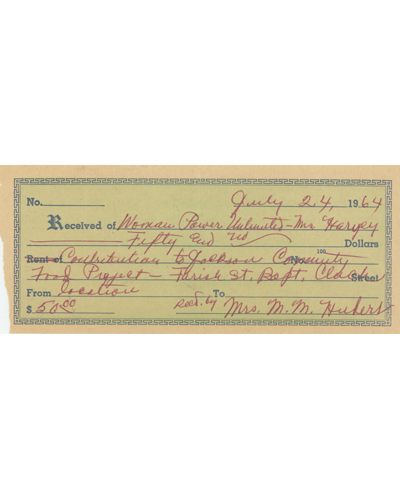 No. July 24, 1964
Received of Woman Power Unlimited - Mrs. Harvey
Fifty and no/100 Dollars
Rent of Contribution to Jackson Community
Food Project - Farish St. Bapt. Street
From location To
$ 50.00 Recd. by Mrs. M. M. Hubert